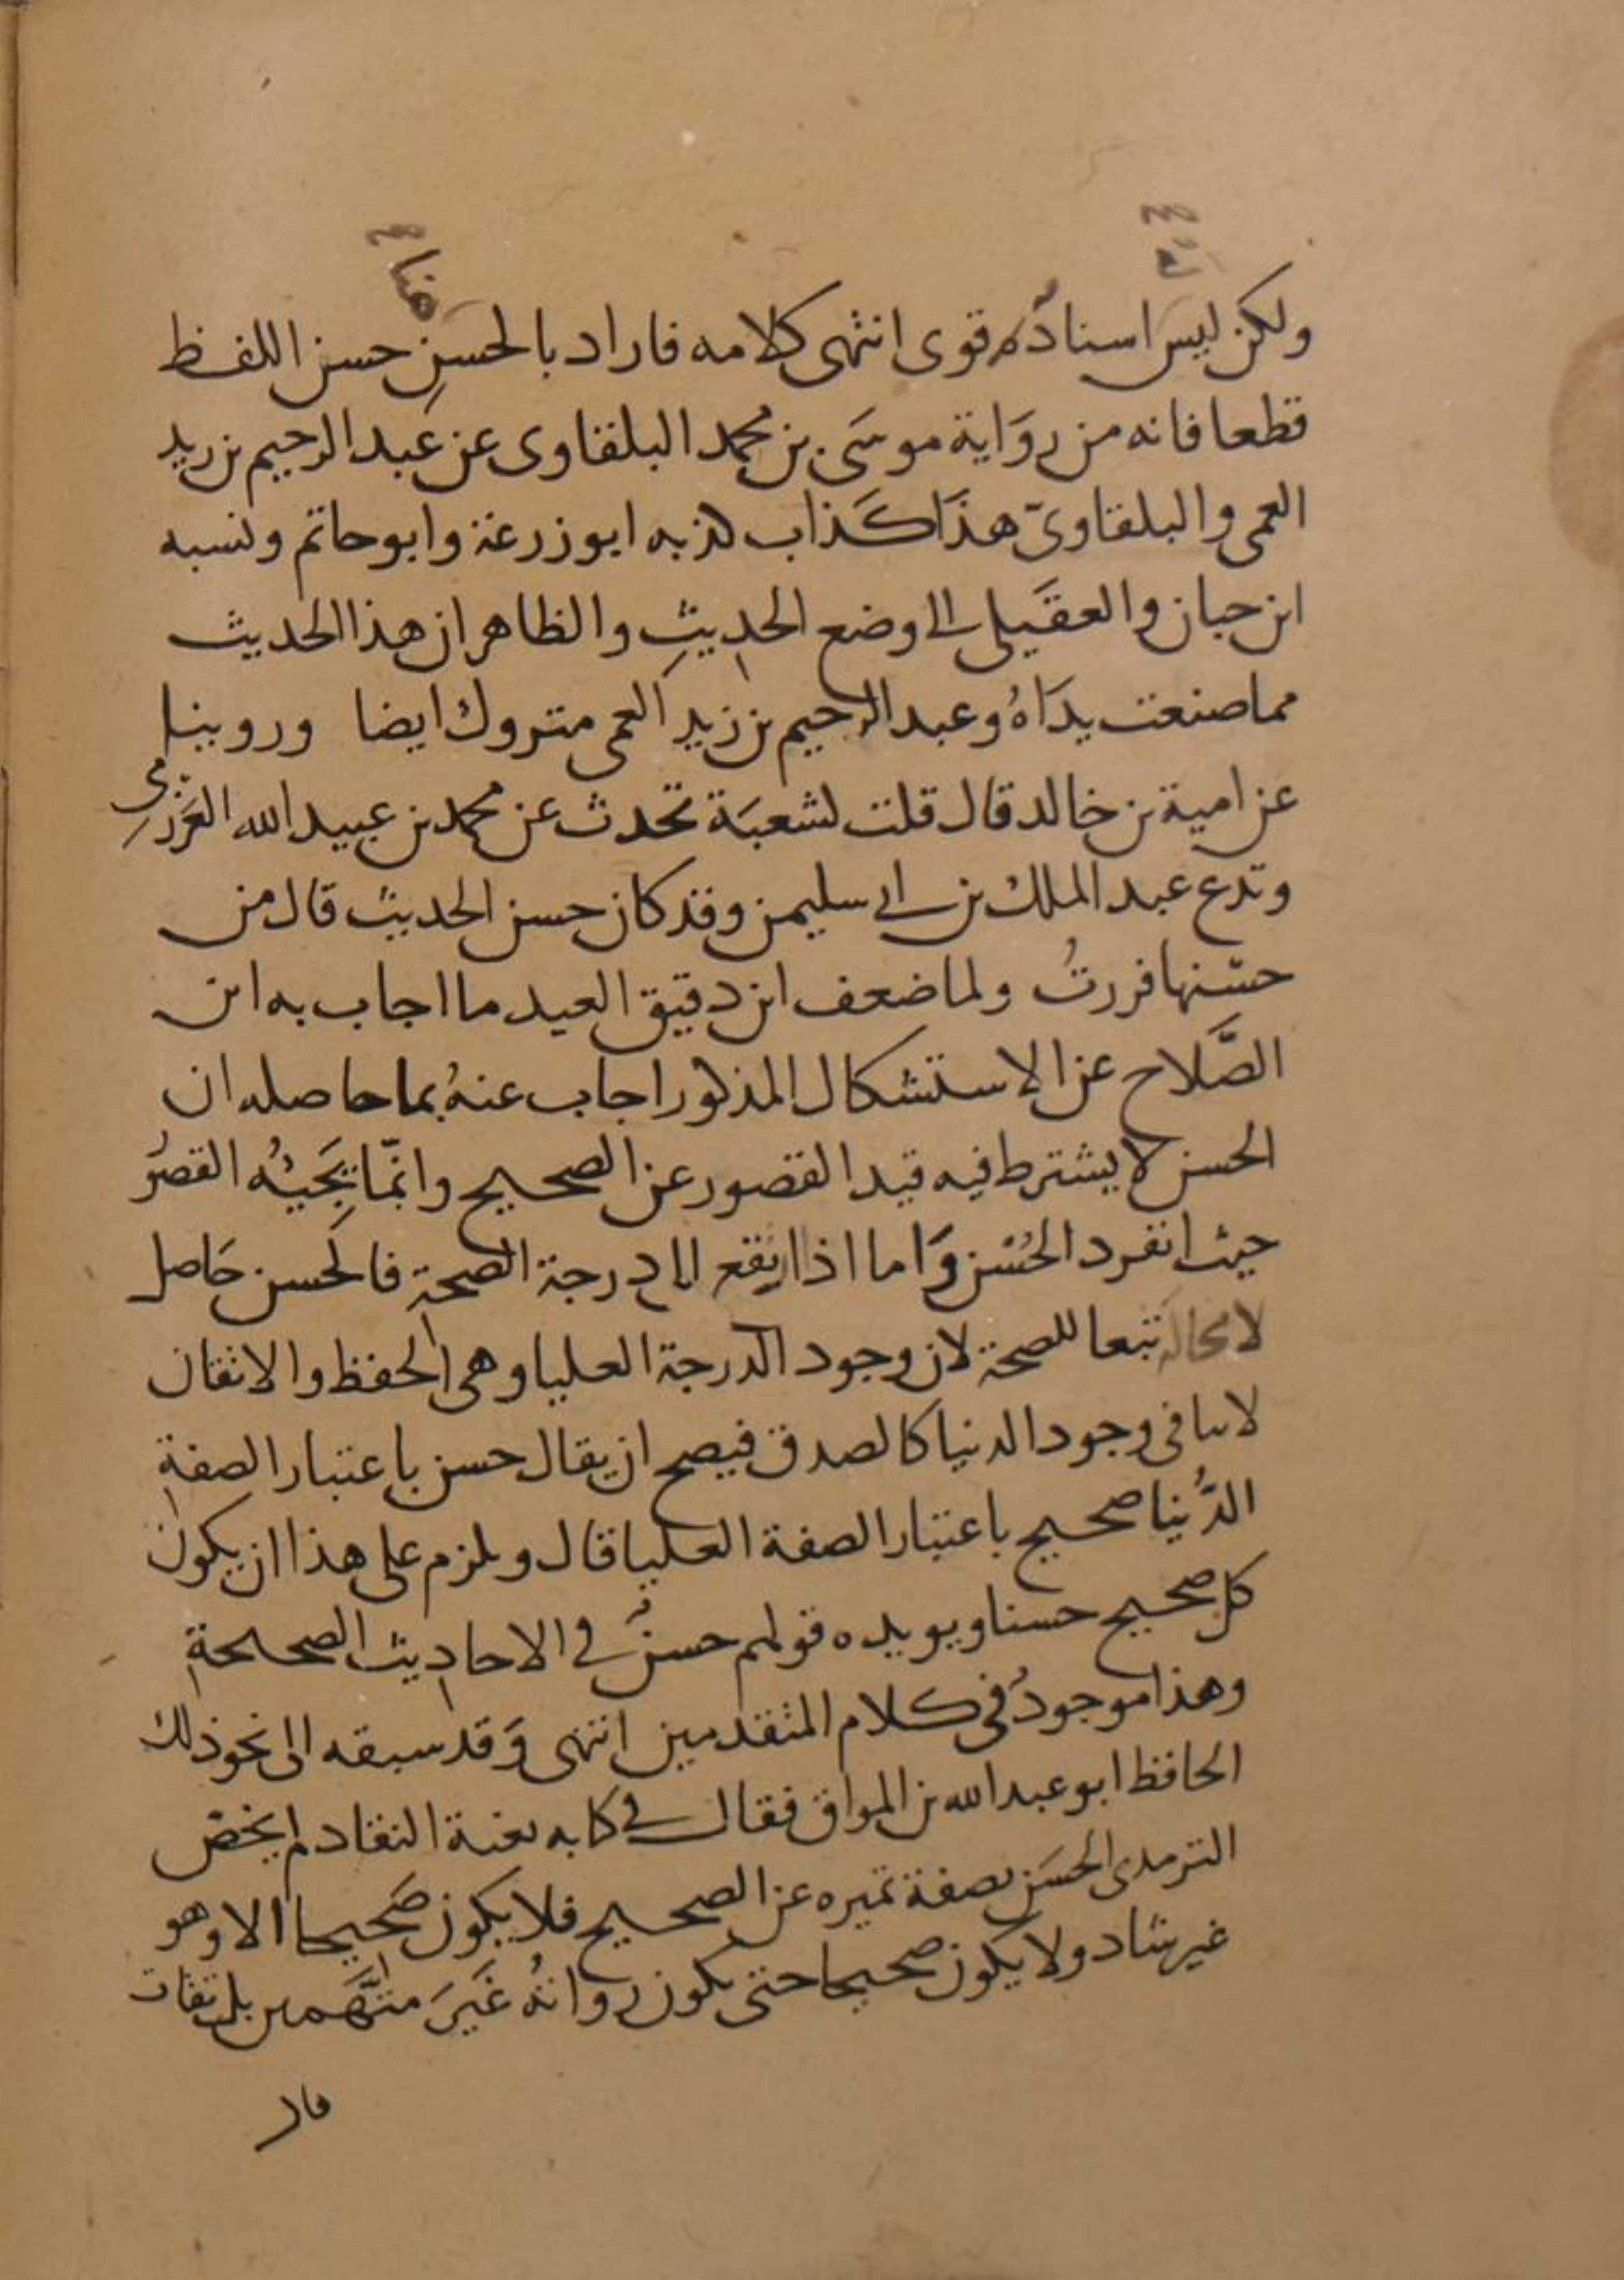 هنا
ولكن ليس اسناده قوى انتهى كلامه فاراد بالحسن حسن اللفظ
قطعا فانه من رواية موسى بن محمد البلقاوى عن عبد الرحيم بن زيد
العمى والبلقاوىّ هذا كذاب كذبه ابو زرعة وابو حاتم ونسبه
ابن حبان والعقيلى الى وضع الحديث والظاهر ان هذا الحديث
مما صنعت يداهُ وعبد الرحيم بن زيد العمى متروك ايضا وروينا
عن امية بن خالد قال قلت لشعبة تحدث عن محمد بن عبيد الله العرزمى
وتدع عبد الملك بن ابى سليمن وقد كان حسن الحديث قال من
حسنها فررتُ ولما ضعف ابن دقيق العيد ما اجاب به ابن
الصَّلاح عن الاستشكال المذكور اجاب عنهُ بما حاصله ان
الحسن لا يشترط فيه قيد القصور عن الصحيح وانّما يجيئه القصورُ
حيث انفرد الحُسْن وَاما اذا ارتفع الى درجة الصحة فالحسن حَاصل
لا محالة تبعا للصحة لان وجود الدرجة العليا وهى الحفظ والاتقان
لا ينافى وجود الدنيا كالصدق فيصح ان يقال حسن باعتبار الصفة
الدُّنيا صحيح باعتبار الصفة العليا قال ويلزم على هذا ان يكون
كل صحيح حسنا ويويده قولهم حسنٌ فى الاحاديث الصحيحة
وهذا موجودٌ فى كلام المتقدمين انتهى وَقد سبقه الى نحو ذلك
الحافظ ابو عبد الله بن المواق فقال فى كتابه بغية النقاد لم يخصّ
الترمذى الحسَن بصفة تميزه عن الصحيح فلا يكون صَحيحا الا وهو
غير شاد ولا يكون صحيحا حتى يكون رواتهُ غَيرَ متَّهمين بل ثقات
قال